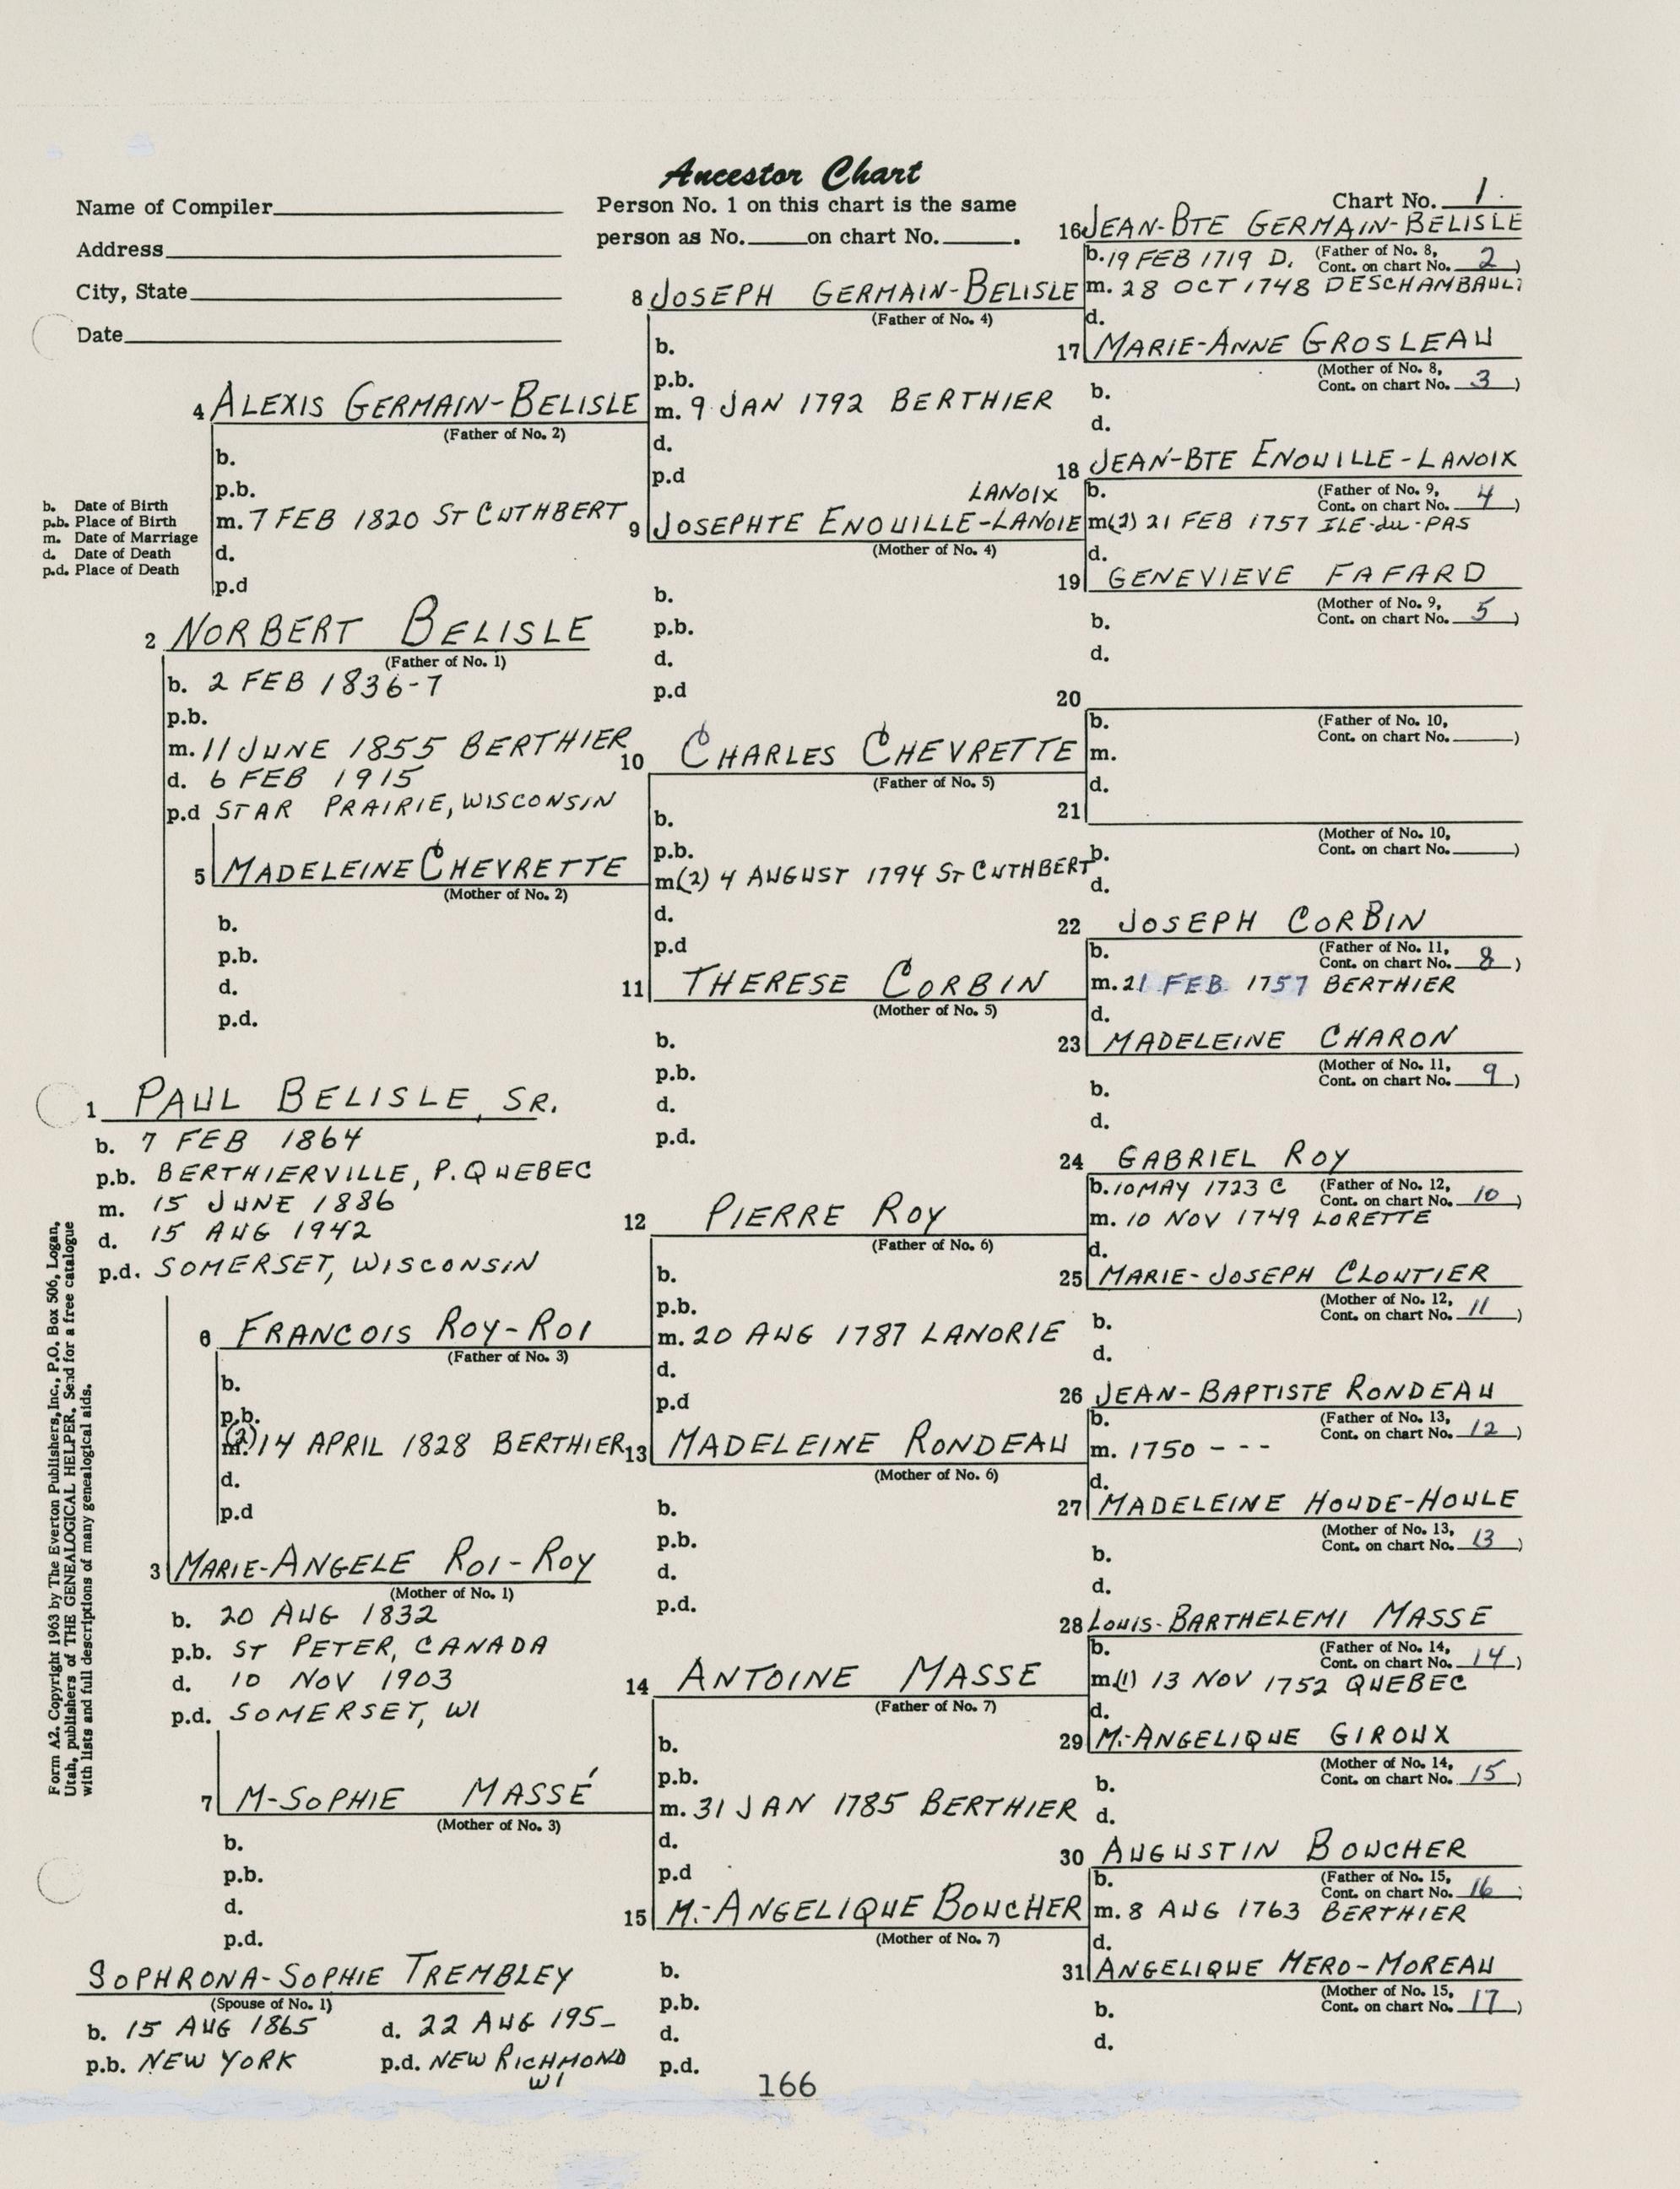 Ancestor Chart
Name of Compiler
Address
City, State
Date
Person No. 1 on this chart is the same
person as No. on chart No. .
Chart No. 1.
b. Date of Birth
p.b. Place of Birth
m. Date of Marriage
d. Date of Death
p.d. Place of Death
1 PAUL BELISLE, SR.
b. 7 FEB 1864
p.b. BERTHIERVILLE, P. QUEBEC
m. 15 JUNE 1886
d. 15 AUG 1942
p.d. SOMERSET, WISCONSIN
2 NORBERT BELISLE
(Father of No. 1)
b. 2 FEB 1836-7
p.b.
m. 11 JUNE 1855 BERTHIER
d. 6 FEB 1915
p.d STAR PRAIRIE, WISCONSIN
3 MARIE-ANGELE ROI-ROY
(Mother of No. 1)
b. 20 AUG 1832
p.b. ST PETER, CANADA
d. 10 NOV 1903
p.d. SOMERSET, WI
4 ALEXIS GERMAIN-BELISLE
(Father of No. 2)
b.
p.b.
m. 7 FEB 1820 ST CUTHBERT
d.
p.d
5 MADELEINE CHEVRETTE
(Mother of No. 2)
b.
p.b.
d.
p.d.
6 FRANCOIS ROY-ROI
(Father of No. 3)
b.
p.b.
m. (2) 14 APRIL 1828 BERTHIER
d.
p.d
7 M-SOPHIE MASSÉ
(Mother of No. 3)
b.
p.b.
d.
p.d.
SOPHRONA-SOPHIE TREMBLEY
(Spouse of No. 1)
b. 15 AUG 1865 d. 22 AUG 195_
p.b. NEW YORK p.d. NEW RICHMOND
WI
8 JOSEPH GERMAIN-BELISLE
(Father of No. 4)
b.
p.b.
m. 9 JAN 1792 BERTHIER
d.
p.d
LANOIX
9 JOSEPHTE ENOUILLE-LANOIE
(Mother of No. 4)
b.
p.b.
d.
p.d
10 CHARLES CHEVRETTE
(Father of No. 5)
b.
p.b.
m(2) 4 AUGUST 1794 ST CUTHBERT
d.
p.d
11 THERESE CORBIN
(Mother of No. 5)
b.
p.b.
d.
p.d.
12 PIERRE ROY
(Father of No. 6)
b.
p.b.
m. 20 AUG 1787 LANORIE
d.
p.d
13 MADELEINE RONDEAU
(Mother of No. 6)
b.
p.b.
d.
p.d.
14 ANTOINE MASSE
(Father of No. 7)
b.
p.b.
m. 31 JAN 1785 BERTHIER
d.
p.d
15 M.-ANGELIQUE BOUCHER
(Mother of No. 7)
b.
p.b.
d.
p.d.
16 JEAN-BTE GERMAIN-BELISLE
b. 19 FEB 1719 D. (Father of No. 8,
Cont. on chart No. 2)
m. 28 OCT 1748 DESCHAMBAULT
d.
17 MARIE-ANNE GROSLEAU
(Mother of No. 8,
b. Cont. on chart No. 3)
d.
18 JEAN-BTE ENOUILLE-LANOIX
b. (Father of No. 9,
Cont. on chart No. 4)
m(2) 21 FEB 1757 ILE-du-PAS
d.
19 GENEVIEVE FAFARD
(Mother of No. 9,
b. Cont. on chart No. 5)
d.
20
b. (Father of No. 10,
Cont. on chart No. )
m.
d.
21
(Mother of No. 10,
b. Cont. on chart No. )
d.
22 JOSEPH CORBIN
b. (Father of No. 11,
Cont. on chart No. 8)
m. 21 FEB 1757 BERTHIER
d.
23 MADELEINE CHARON
(Mother of No. 11,
b. Cont. on chart No. 9)
d.
24 GABRIEL ROY
b. 10 MAY 1723 C (Father of No. 12,
Cont. on chart No. 10)
m. 10 NOV 1749 LORETTE
d.
25 MARIE-JOSEPH CLOUTIER
(Mother of No. 12,
b. Cont. on chart No. 11)
d.
26 JEAN-BAPTISTE RONDEAU
b. (Father of No. 13,
Cont. on chart No. 12)
m. 1750 - - -
d.
27 MADELEINE HOUDE-HOULE
(Mother of No. 13,
b. Cont. on chart No. 13)
d.
28 LOUIS-BARTHELEMI MASSE
b. (Father of No. 14,
Cont. on chart No. 14)
m.(1) 13 NOV 1752 QUEBEC
d.
29 M.-ANGELIQUE GIROUX
(Mother of No. 14,
b. Cont. on chart No. 15)
d.
30 AUGUSTIN BOUCHER
b. (Father of No. 15,
Cont. on chart No. 16
m. 8 AUG 1763 BERTHIER
d.
31 ANGELIQUE MERO-MOREAU
(Mother of No. 15,
b. Cont. on chart No. 17)
d.
Form A2. Copyright 1963 by The Everton Publishers, Inc., P.O. Box 506, Logan,
Utah, publishers of THE GENEALOGICAL HELPER. Send for a free catalogue
with lists and full descriptions of many genealogical aids.
166